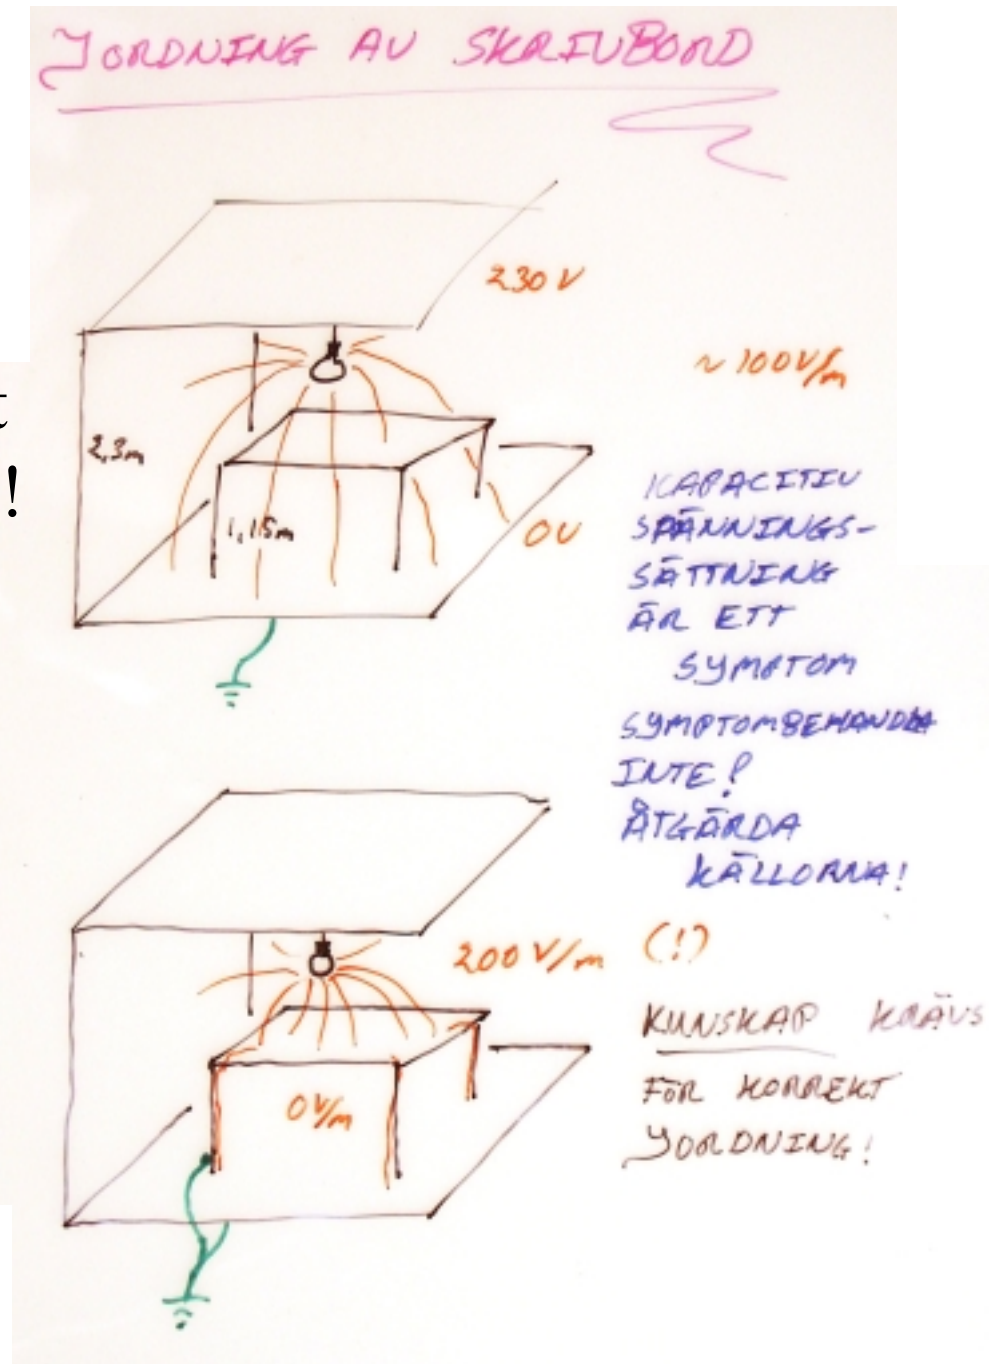 JORDNING AV SKRIVBORD
230 V
~100V/m
t
2,3m
!
KAPACITIV
SPÄNNINGS-
1,15m
0V
SÄTTNING
ÄR ETT
SYMPTOM
SYMPTOMBEHANDLA
INTE!
ÅTGÄRDA
KÄLLORNA!
200 V/m (!)
KUNSKAP KRÄVS
FÖR KORREKT
0V/m
JORDNING!